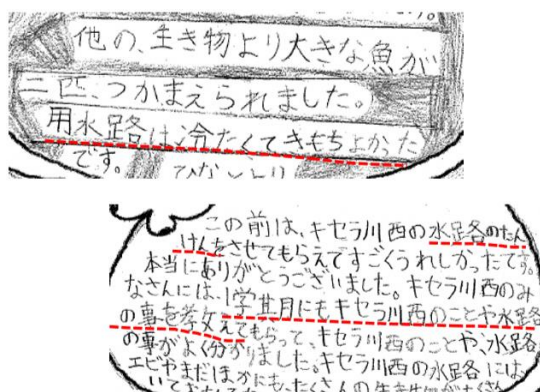 他の、生き物より大きな魚が
二匹、つかまえられました。
用水路は冷たくてきもちよかった
です。
この前は、キセラ川西の水路のたん
けんをさせてもらえてすごくうれしかったです。
本当にありがとうございました。キセラ川西のみ
なさんには、1学期にもキセラ川西のことや水路
の事を教えてもらって、キセラ川西のことや、水路
の事がよく分かりました。キセラ川西の水路には
エビやまだほかにも、たくさんの生き物が